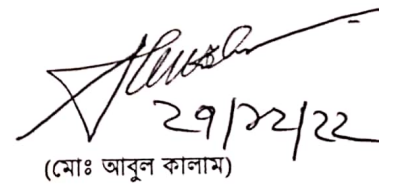 ২৭/১২/২২
(মোঃ আবুল কালাম)